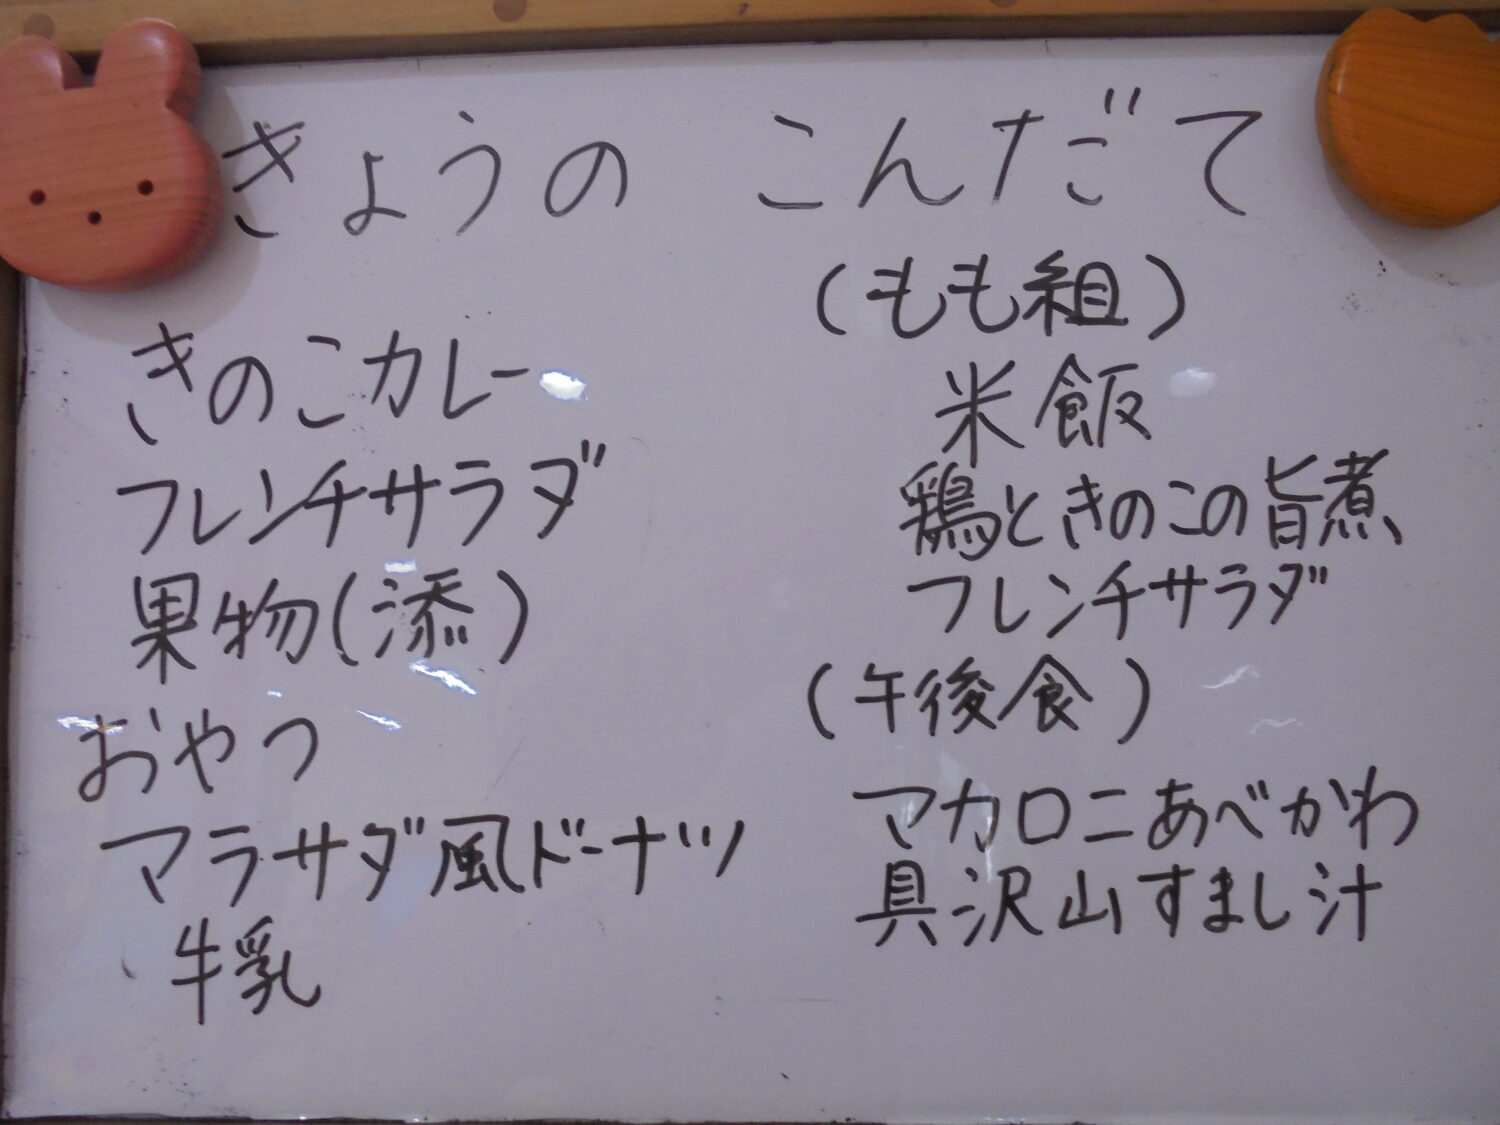 きょうの こんだて
きのこカレー
フレンチサラダ
果物(添)
おやつ
マラサダ風ドーナツ
牛乳
(もも組)
米飯
鶏ときのこの旨煮
フレンチサラダ
(午後食)
マカロニあべかわ
具沢山すまし汁